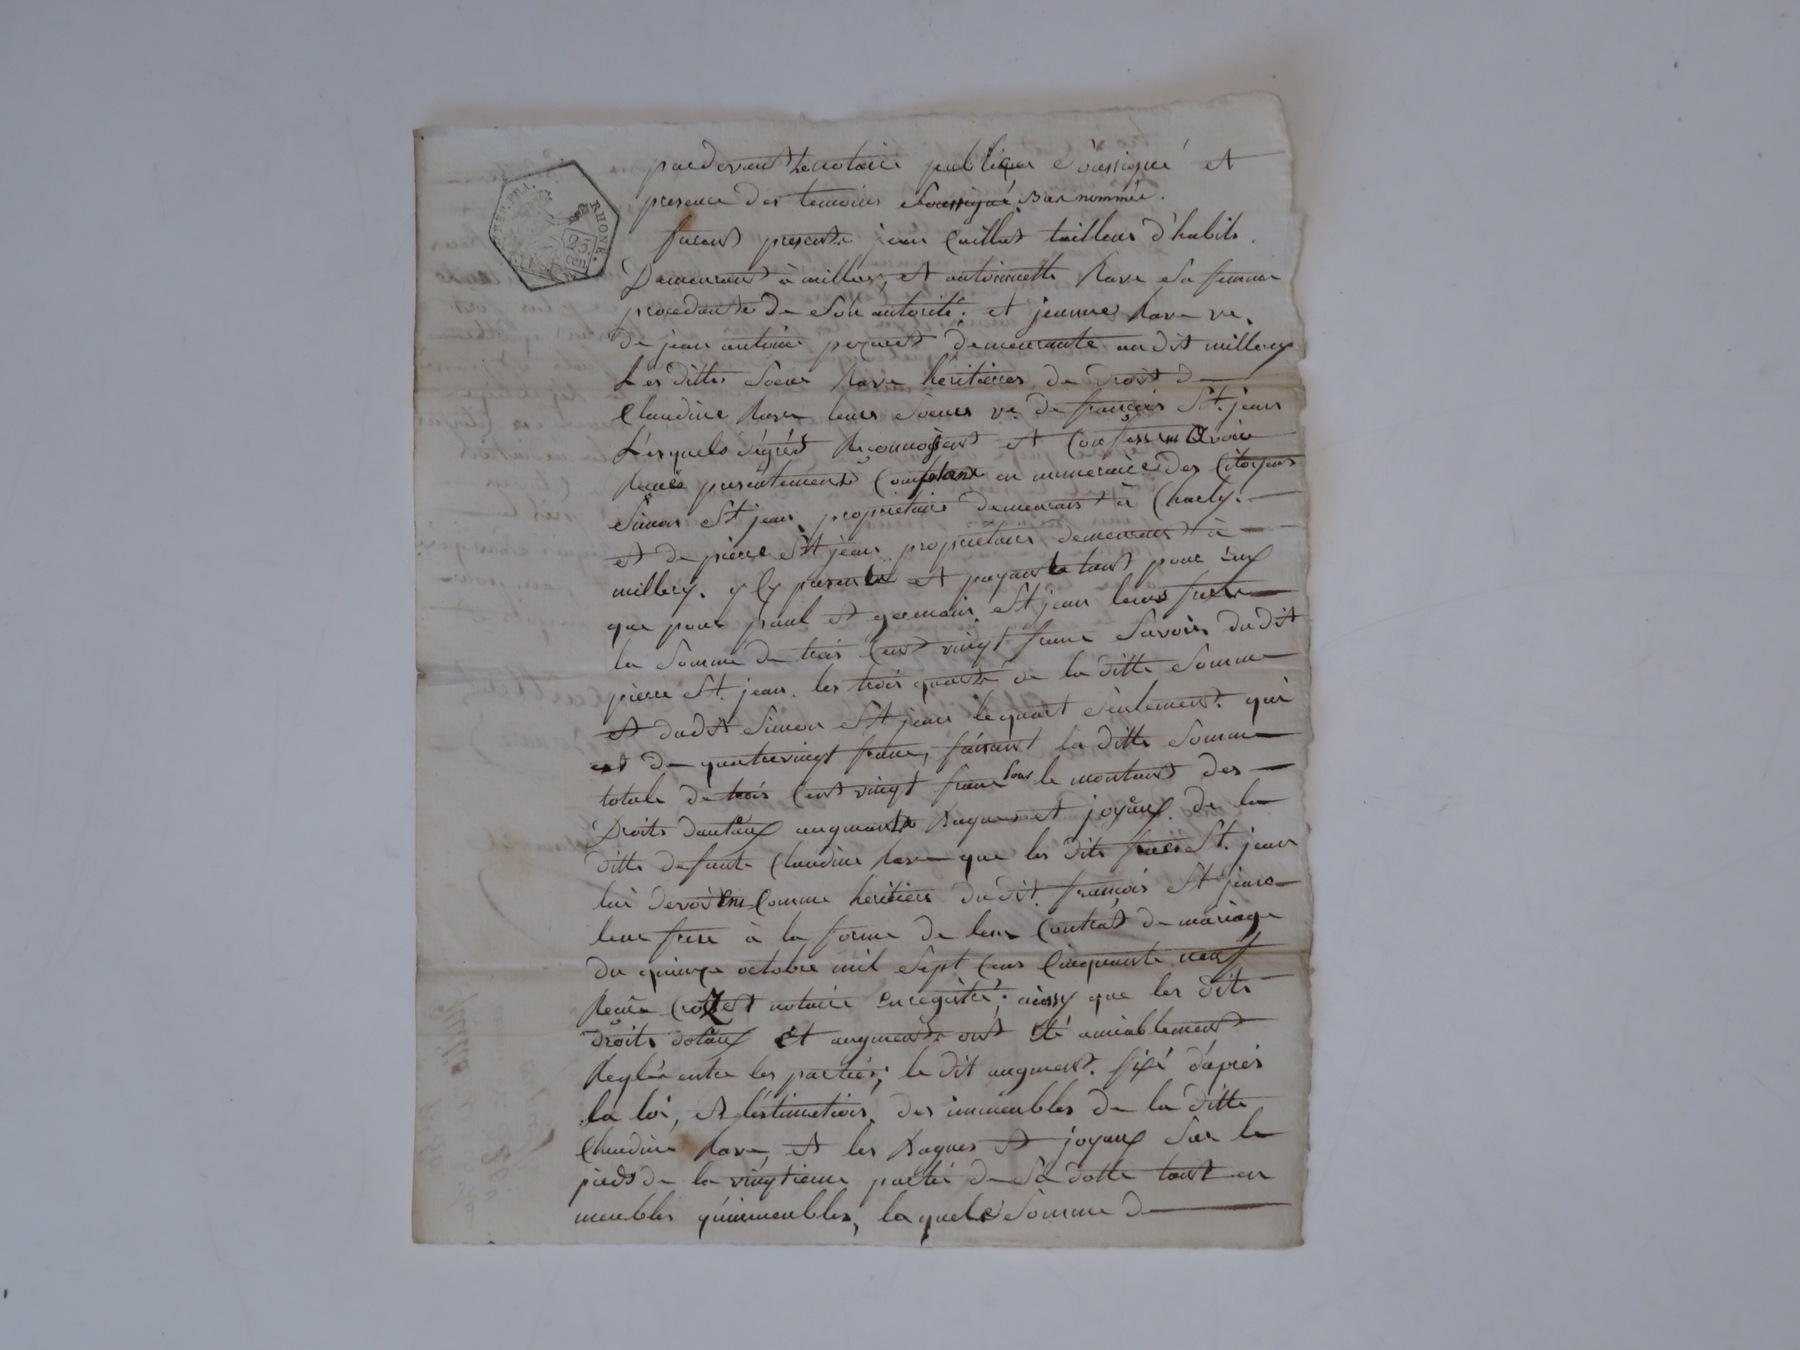 pardevant le notaire publique soussigné et
presence des temoins soussigné Bas nommée.
furent present jean Caillot tailleur d'habits.
Demeurant à millery, et antoinette Rave sa femme
procedante de son autorité. et jeanne Rave ve.
de jean antoine demeurante au dit millery
Les dittes soeur Rave héritieres de droit de
Claudine Rave leur soeur ve. de françois St. jean
Lesquels degrés Reconnoissent et Confessent avoir
Recus presentement Comptant en numeraire des Citoyens
Simon St jean proprietaire demeurant à Charly.
et de pierre St jean proprietaire demeurant à
millery. y Cy presents et payants tant pour Eux
que pour paul et germain St jean leurs frere
la Somme de trois Cent vingt franc Savoir dudit
pierre St. jean. les trois quarts de la ditte Somme
et dudit Simon St jean le quart seulement. qui
est de quatrevingt franc, faisant la ditte Somme
totale de trois Cent vingt franc pour le montant des
Droits dautaux augments Bagues et joyaux. de la
ditte defunte Claudine Rave que les dits freres St. jean
lui devoient Comme heritiers dudit. françois St jean
leur frere à la forme de leur Contrat de mariage
du quinze octobre mil sept Cens Cinquante neuf
Recu notaire enregistré; aussy que les dits
droits dotaux et augments ont été amiablement
Reglés entre les parties; le dit augment. fixé d'apres
la loi, et l'estimation des immeubles de la ditte
Claudine Rave, et les Bagues et joyaux sur le
pieds de la vingtieme partie de sa dotte tant en
meubles qu'immeubles, la quele somme de
25
cen
RHONE.